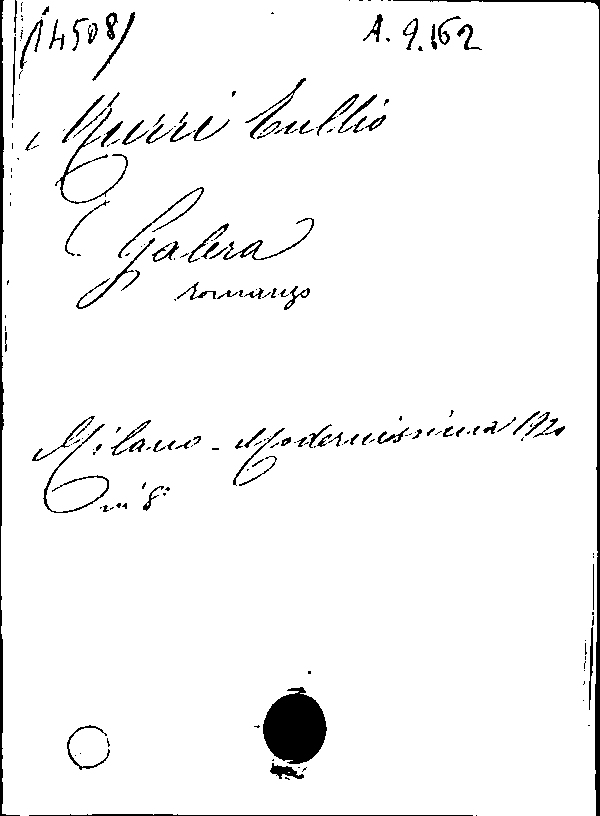 (14508) A.9.162
Murri Tullio
Galera
romanzo
Milano - Modernissima 1920
in 8°